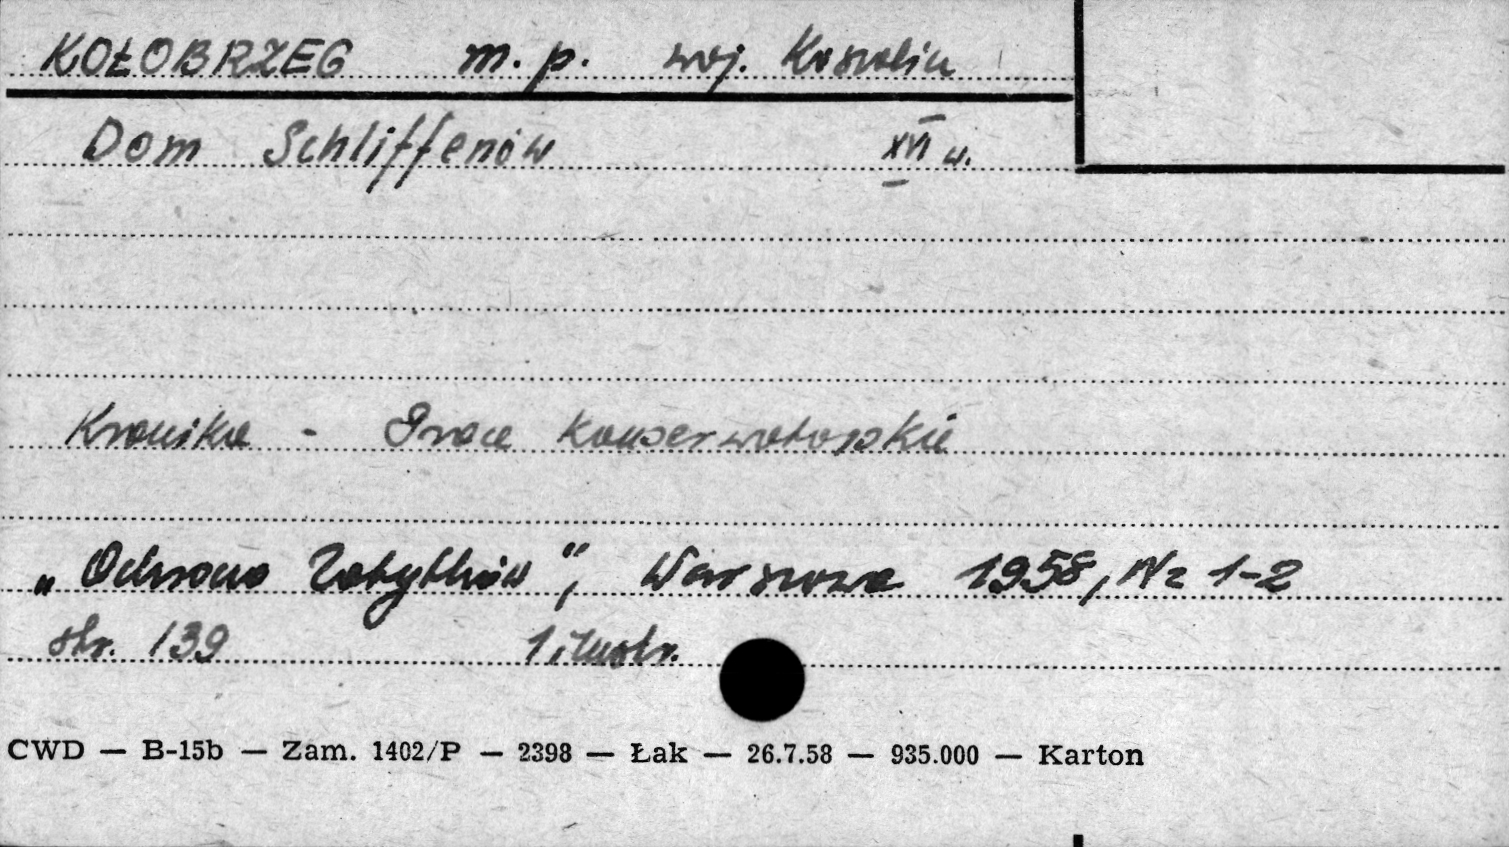 KOŁOBRZEG m. p. woj. Koszalin
Dom Schliffenów XVI w.
Kronika - Prace konserwatorskie
„Ochrona Zabytków”, Warszawa 1958, Nr 1-2
str. 139 1 ilustr.
CWD — B-15b — Zam. 1402/P — 2398 — Łak — 26.7.58 — 935.000 — Karton